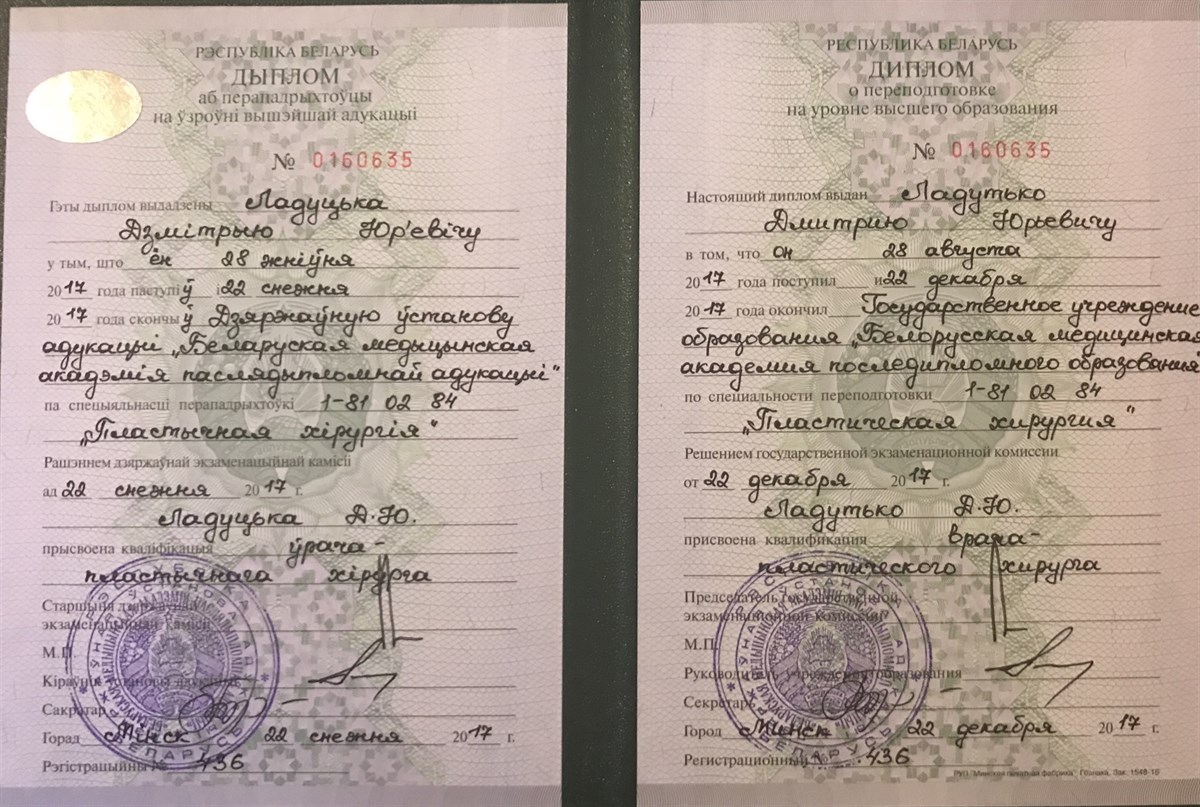 РЭСПУБЛІКА БЕЛАРУСЬ
ДЫПЛОМ
аб перападрыхтоўцы
на ўзроўні вышэйшай адукацыі
№ 0160635
Гэты дыплом выдадзены Ладуцька
Дзмітрыю Юр'евічу
у тым, што ён 28 жніўня
2017 года паступіў і 22 снежня
2017 года скончыў Дзяржаўную ўстанову
адукацыі „Беларуская медыцынская
акадэмія паслядыпломнай адукацыі"
па спецыяльнасці перападрыхтоўкі 1-81 02 84
„Пластычная хірургія"
Рашэннем дзяржаўнай экзаменацыйнай камісіі
ад 22 снежня 2017 г.
Ладуцька Д.Ю.
прысвоена кваліфікацыя ўрача-
пластычнага хірурга
Старшыня дзяржаўнай
экзаменацыйнай камісіі
М.П.
Кіраўнік установы адукацыі
Сакратар
Горад Мінск 22 снежня 2017 г.
Рэгістрацыйны № 436
РЕСПУБЛИКА БЕЛАРУСЬ
ДИПЛОМ
о переподготовке
на уровне высшего образования
№ 0160635
Настоящий диплом выдан Ладутько
Дмитрию Юрьевичу
в том, что он 28 августа
2017 года поступил и 22 декабря
2017 года окончил Государственное учреждение
образования „Белорусская медицинская
академия последипломного образования
по специальности переподготовки 1-81 02 84
„Пластическая хирургия"
Решением государственной экзаменационной комиссии
от 22 декабря 2017 г.
Ладутько Д.Ю.
присвоена квалификация врача-
пластического хирурга
Председатель государственной
экзаменационной комиссии
М.П.
Руководитель учреждения образования
Секретарь
Город Минск 22 декабря 2017 г.
Регистрационный № 436
РУП "Минская печатная фабрика" Гознака. Зак. 1548-10